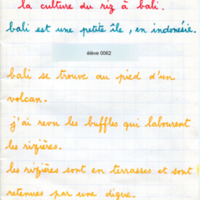 la culture du riz à bali.
bali est une petite île, en indonésie.
élève 0062
bali se trouve au pied d'un
volcan.
j'ai revu les buffles qui labourent
les rizières.
les rizières sont en terrasses et sont
retenues par une digue.